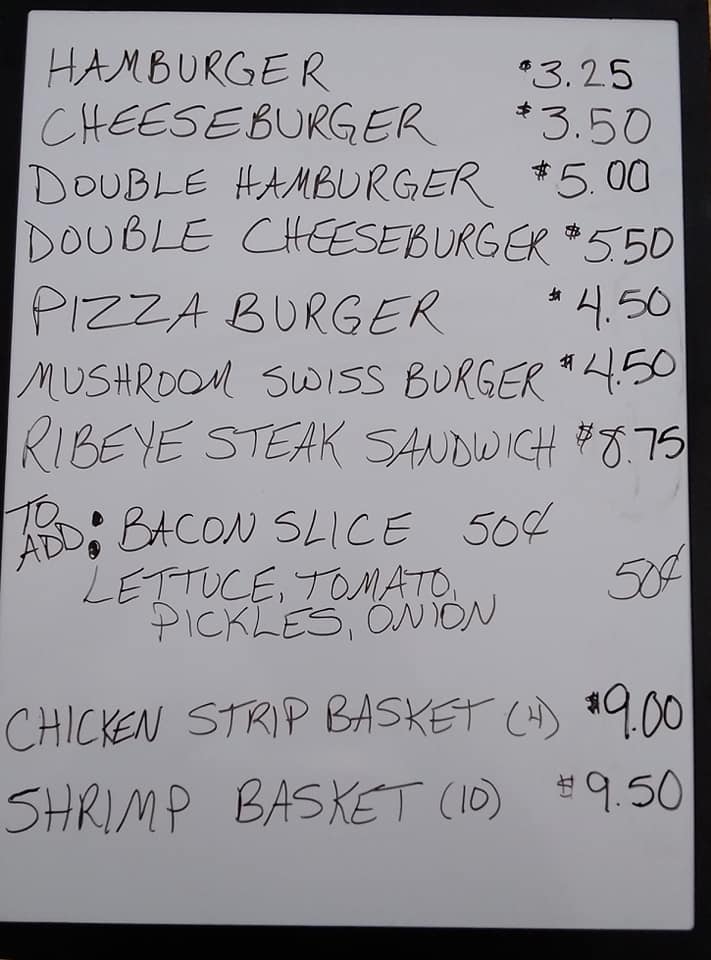 HAMBURGER $3.25
CHEESEBURGER $3.50
DOUBLE HAMBURGER $5.00
DOUBLE CHEESEBURGER $5.50
PIZZA BURGER $4.50
MUSHROOM SWISS BURGER $4.50
RIBEYE STEAK SANDWICH $8.75
TO ADD: BACON SLICE 50¢
LETTUCE, TOMATO, 50¢
PICKLES, ONION
CHICKEN STRIP BASKET (4) $9.00
SHRIMP BASKET (10) $9.50